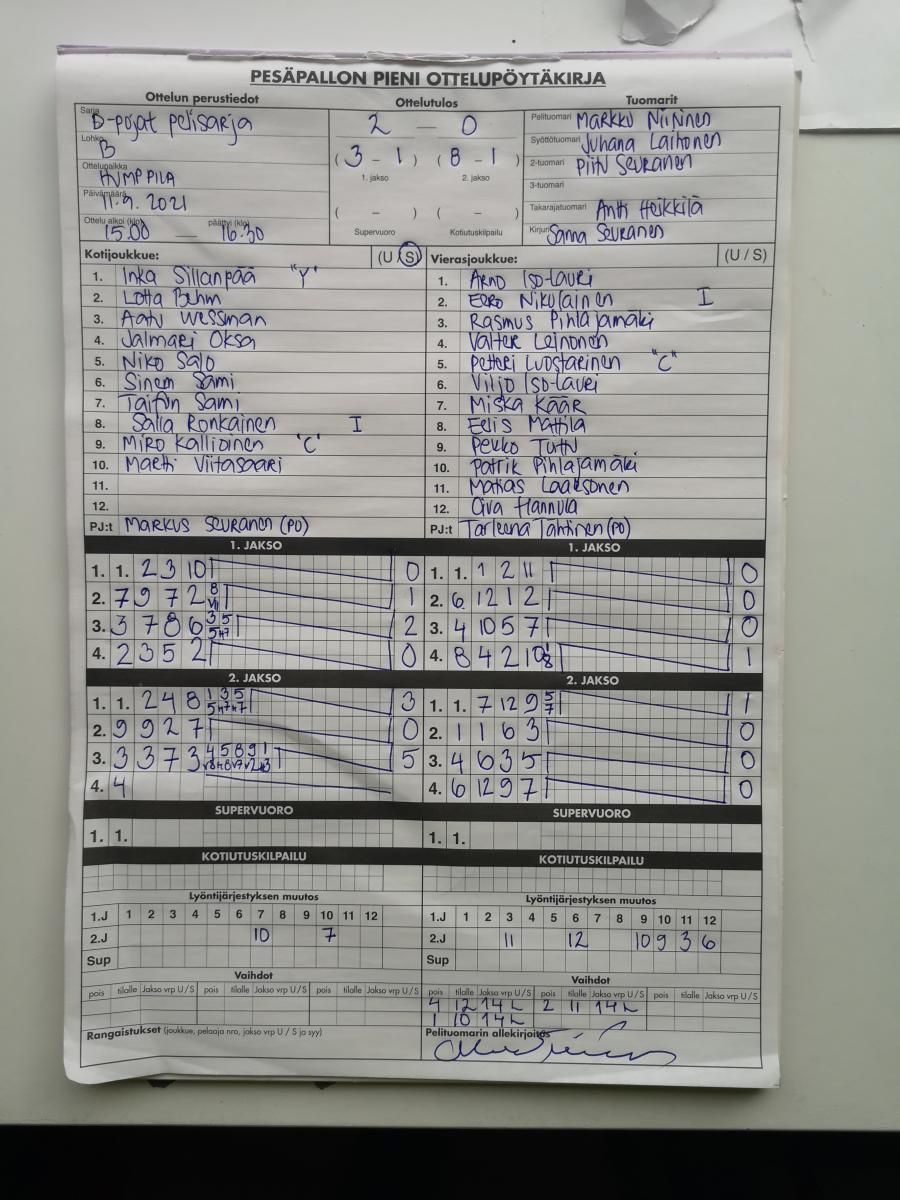 PESÄPALLON PIENI OTTELUPÖYTÄKIRJA
Ottelun perustiedot
Sarja B-pojat pelisarja
Lohko B
Ottelupaikka HVMP PILA
Päivämäärä 11.9. 2021
Ottelu alkoi (klo) 15.00 — päättyi (klo) 16.30
Ottelutulos
2 — 0
(3 - 1) (8 - 1)
1. jakso 2. jakso
( - ) ( - )
Supervuoro Kotiutuskilpailu
Tuomarit
Pelituomari Markku Niininen
Syöttötuomari Juhana Laihonen
2-tuomari Piitu Seuranen
3-tuomari
Takarajatuomari Antti Heikkilä
Kirjuri Sanna Seuranen
Kotijoukkue: (U / S)
1. Inka Sillanpää "Y"
2. Lotta Behm
3. Aatu Wessman
4. Jalmari Oksa
5. Niko Salo
6. Sinem Sami
7. Taifun Sami
8. Salla Ronkainen I
9. Miro Kallioinen "C"
10. Martti Viitasaari
11.
12.
PJ:t Markus Seuranen (PO)
Vierasjoukkue: (U / S)
1. Arno Iso-Lauri
2. Eero Nikulainen I
3. Rasmus Pihlajamäki
4. Valter Leinonen
5. Petteri Luostarinen "C"
6. Viljo Iso-Lauri
7. Miska Käär
8. Eelis Mattila
9. Pekko Turtu
10. Patrik Pihlajamäki
11. Matias Laaksonen
12. Oiva Hannula
PJ:t Tarleena Tähtinen (PO)
1. JAKSO
1. 1. 2 3 10 0
2. 7 9 7 2 8 1
3. 3 7 8 6 3 5 2
4. 2 3 5 2 0
2. JAKSO
1. 1. 2 4 8 1 3 5 3
2. 9 9 2 7 0
3. 3 3 7 3 4 5 8 9 1 5
4. 4
SUPERVUORO
1. 1.
KOTIUTUSKILPAILU
1. JAKSO
1. 1. 1 2 11 0
2. 6 12 1 2 0
3. 4 10 5 7 0
4. 8 4 2 10 1
2. JAKSO
1. 1. 7 12 9 5 1
2. 1 1 6 3 0
3. 4 6 3 5 0
4. 6 12 9 7 0
SUPERVUORO
1. 1.
KOTIUTUSKILPAILU
Lyöntijärjestyksen muutos
1.J 1 2 3 4 5 6 7 8 9 10 11 12
2.J 10 7
Sup
Vaihdot
pois tilalle Jakso vrp U / S pois tilalle Jakso vrp U / S pois tilalle Jakso vrp U / S
Rangaistukset (joukkue, pelaaja nro, jakso vrp U / S ja syy)
Lyöntijärjestyksen muutos
1.J 1 2 3 4 5 6 7 8 9 10 11 12
2.J 11 12 10 9 3 6
Sup
Vaihdot
pois tilalle Jakso vrp U / S pois tilalle Jakso vrp U / S pois tilalle Jakso vrp U / S
4 12 14L 2 11 14L
1 10 14L
Pelituomarin allekirjoitus